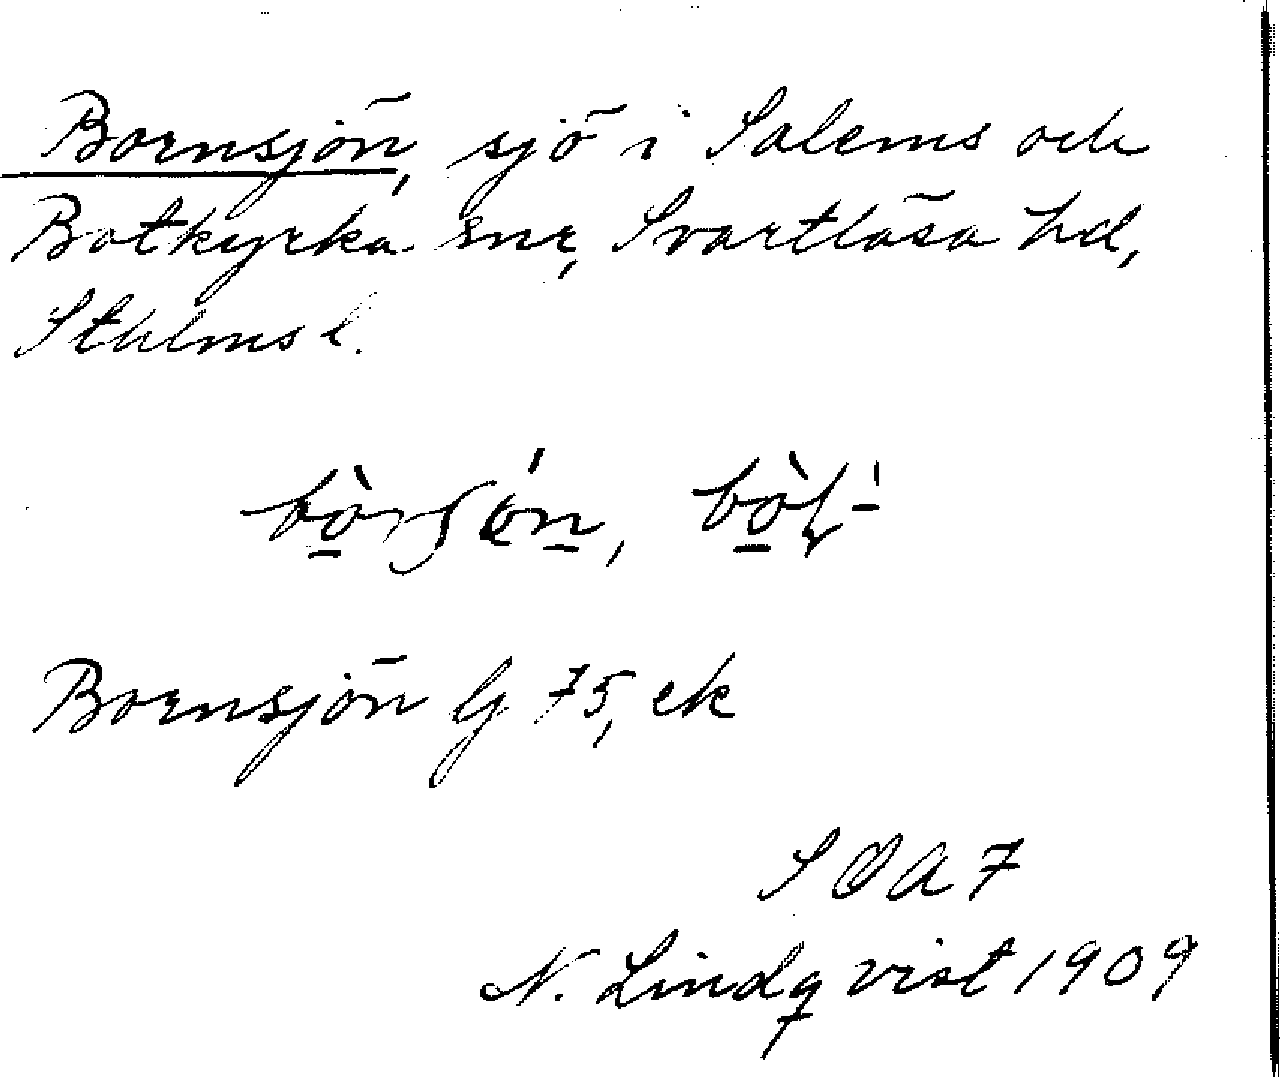 Bornsjön, sjö i Salems och
Botkyrka snr, Svartlösa hd,
Sthlms l.
Bornsjön G 75, ek
SOA 7
N. Lindqvist 1909